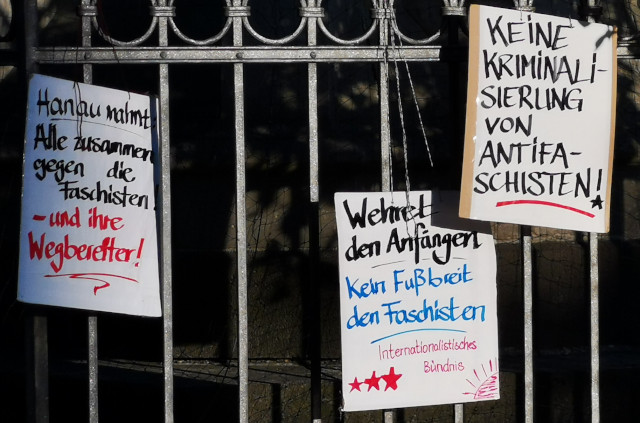 Hanau mahnt!
Alle zusammen
gegen die
Faschisten!
- und ihre
Wegbereiter!
Wehret
den Anfängen
Kein Fußbreit
den Faschisten
Internationalistisches
Bündnis
KEINE
KRIMINALI-
SIERUNG
VON
ANTIFA-
SCHISTEN!